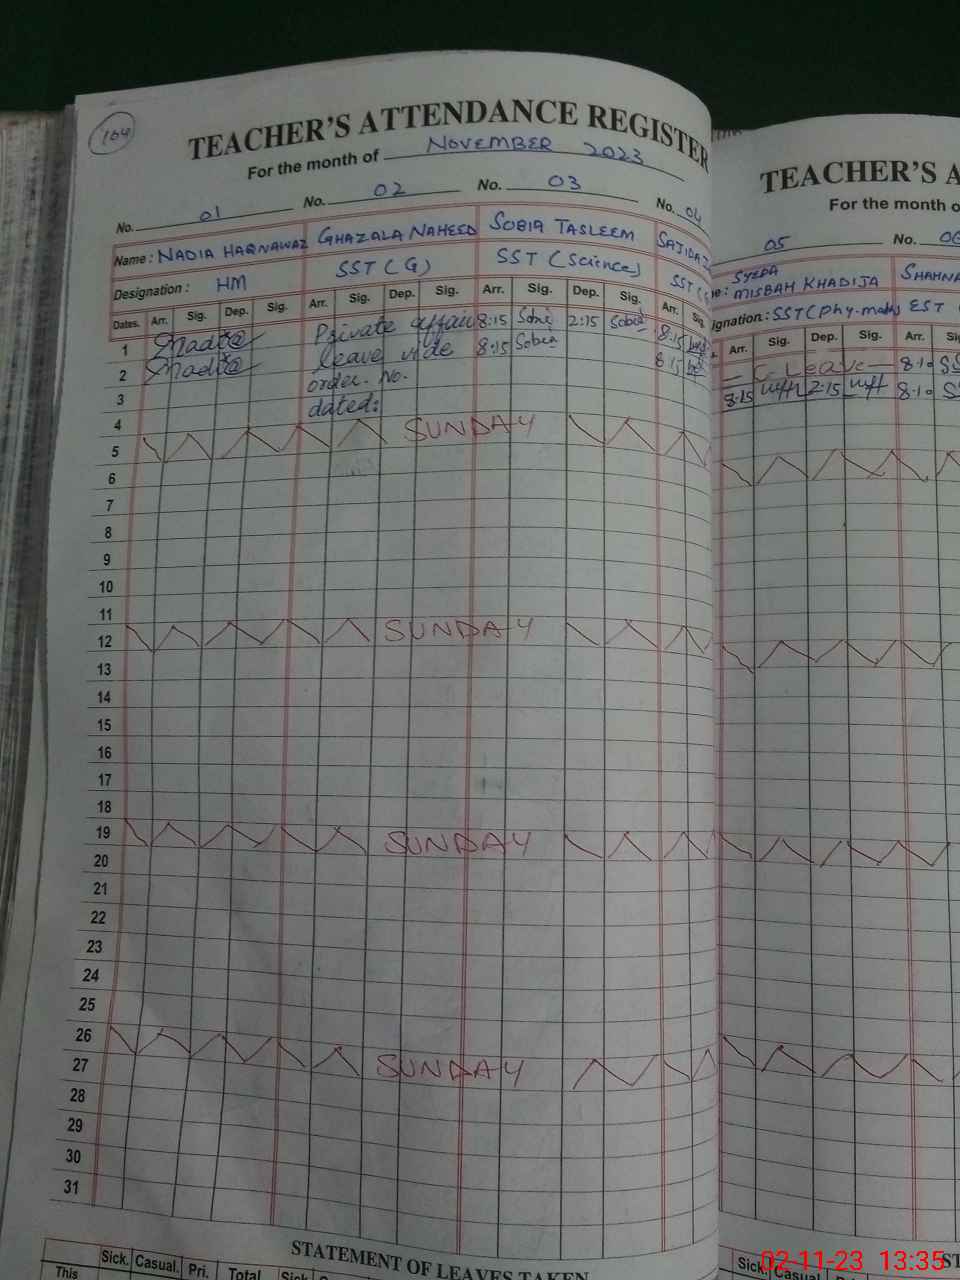 164
TEACHER'S ATTENDANCE REGISTER
For the month of NOVEMBER 2023
No. 01 No. 02 No. 03 No. 04
Name: NADIA HAQNAWAZ GHAZALA NAHEED SOBIA TASLEEM SAJIDA
Designation: HM SST (G) SST (Science) SST (
Dates. Arr. Sig. Dep. Sig. Arr. Sig. Dep. Sig. Arr. Sig. Dep. Sig. Arr. Sig.
1 Nadia Private affair 8:15 Sobia 2:15 Sobia 8:15
2 Nadia leave vide 8:15 Sobia 8:15
3 order. No.
4 dated:
5 SUNDAY
6
7
8
9
10
11
12 SUNDAY
13
14
15
16
17
18
19 SUNDAY
20
21
22
23
24
25
26 SUNDAY
27
28
29
30
31
STATEMENT OF LEAVES TAKEN
This Sick. Casual. Pri. Total Sick
TEACHER'S A
For the month o
05 No. 06
me: SYEDA MISBAH KHADIJA SHAHNA
ignation: SST (Phy-math) EST
Arr. Sig. Dep. Sig. Arr. Sig
C Leave 8:10
8:15 2:15 8:10
ST
Sick. Casual. Pri. Total
02-11-23 13:35